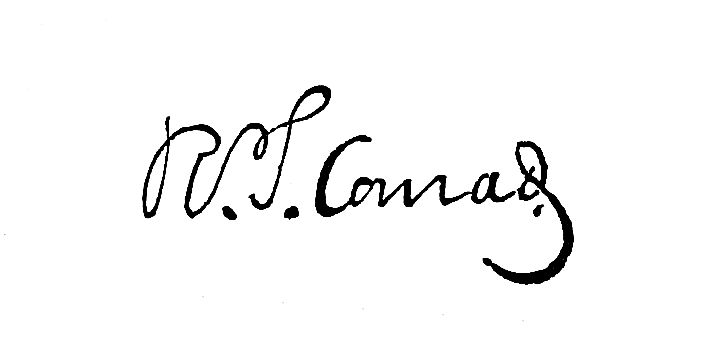 R. T. Conrad.